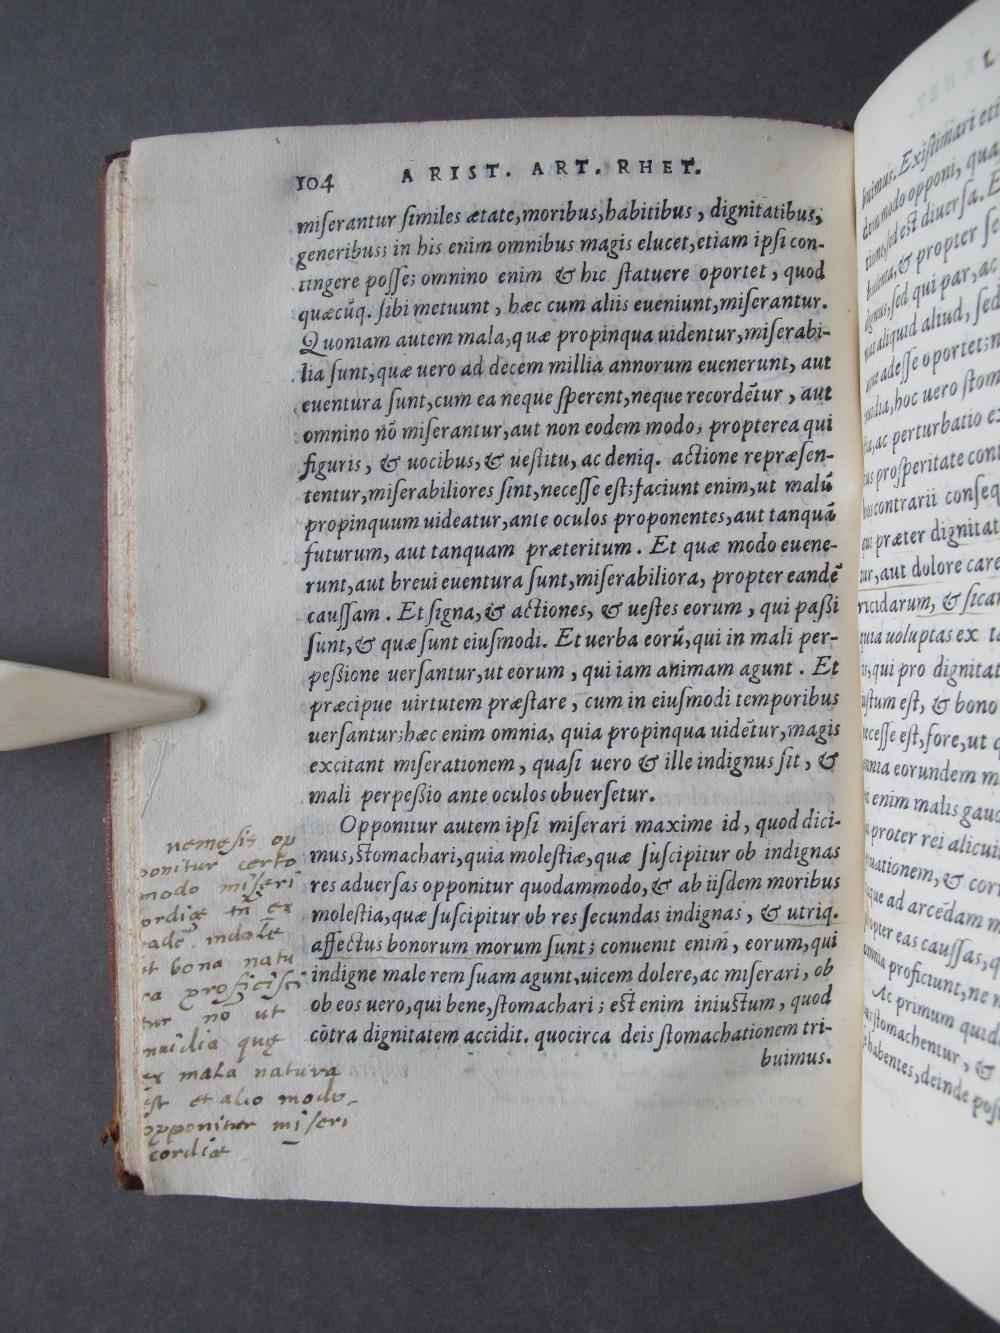 104 ARIST. ART. RHET.
miſerantur ſimiles ætate,moribus,habitibus, dignitatibus,
generibus; in his enim omnibus magis elucet,etiam ipſi con-
tingere poſſe; omnino enim & hic ſtatuere oportet, quod
quæcũq. ſibi metuunt, hæc cum aliis eueniunt,miſerantur.
Quoniam autem mala,quæ propinqua uidentur,miſerabi-
lia ſunt,quæ uero ad decem millia annorum euenerunt, aut
euentura ſunt,cum ea neque ſperent,neque recordẽtur, aut
omnino nõ miſerantur,aut non eodem modo; propterea qui
figuris, & uocibus,& ueſtitu, ac deniq. actione repræſen-
tentur,miſerabiliores ſint,neceſſe eſt;faciunt enim,ut malũ
propinquum uideatur,ante oculos proponentes,aut tanquã
futurum, aut tanquam præteritum. Et quæ modo euene-
runt,aut breui euentura ſunt,miſerabiliora, propter eandẽ
cauſſam. Et ſigna,& actiones, & ueſtes eorum, qui paßi
ſunt,& quæ ſunt eiuſmodi. Et uerba eorũ,qui in mali per-
peßione uerſantur,ut eorum, qui iam animam agunt. Et
præcipue uirtutem præſtare, cum in eiuſmodi temporibus
uerſantur;hæc enim omnia, quia propinqua uidẽtur,magis
excitant miſerationem, quaſi uero & ille indignus ſit, &
mali perpeßio ante oculos obuerſetur.
Opponitur autem ipſi miſerari maxime id, quod dici-
mus,ſtomachari,quia moleſtiæ,quæ ſuſcipitur ob indignas
res aduerſas opponitur quodammodo,& ab iiſdem moribus
moleſtia,quæ ſuſcipitur ob res ſecundas indignas, & utriq.
affectus bonorum morum ſunt; conuenit enim, eorum,qui
indigne male rem ſuam agunt,uicem dolere,ac miſerari, ob
ob eos uero,qui bene,ſtomachari; eſt enim iniuſtum, quod
cõtra dignitatem accidit. quocirca deis ſtomachationem tri-
buimus.
nemesis op
ponitur certo
modo miseri
ordiæ tñ ex
eadẽ indole
et bona natu
ra proficisci
tur nõ ut
inuidia quę
ex mala natura
est et alio modo
opponitur miseri
cordiæ
buimus. Exiſtimari
dem modo opponi, qua
tione,ſed eſt diuerſa.
& propter ſe
ſed qui par, ac
aliquid aliud, ſed
adeſſe oportet;
hoc uero ſtom
ac perturbatio
proſperitate
contrarii conſeq
præter dignitat
tur,aut dolore care
ricidarum, & ſicar
quia uoluptas ex
qui pro dignitat
iuſtum eſt, & bono
neceſſe eſt,fore,ut
omnia eorundem m
enim malis
proter rei alicui
& cor
que ad arcẽdam m
propter eas cauſſas,
omnia proficiunt,ne
Ac primum quid
ſtomachentur, &
habentes,deinde poſ